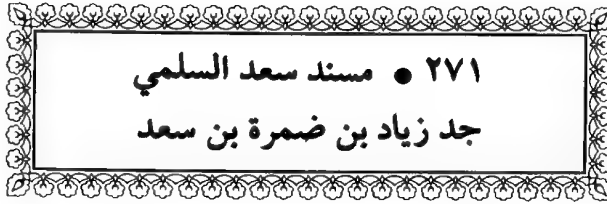 ٢٧١ • مسند سعد السلمي
جد زياد بن ضمرة بن سعد